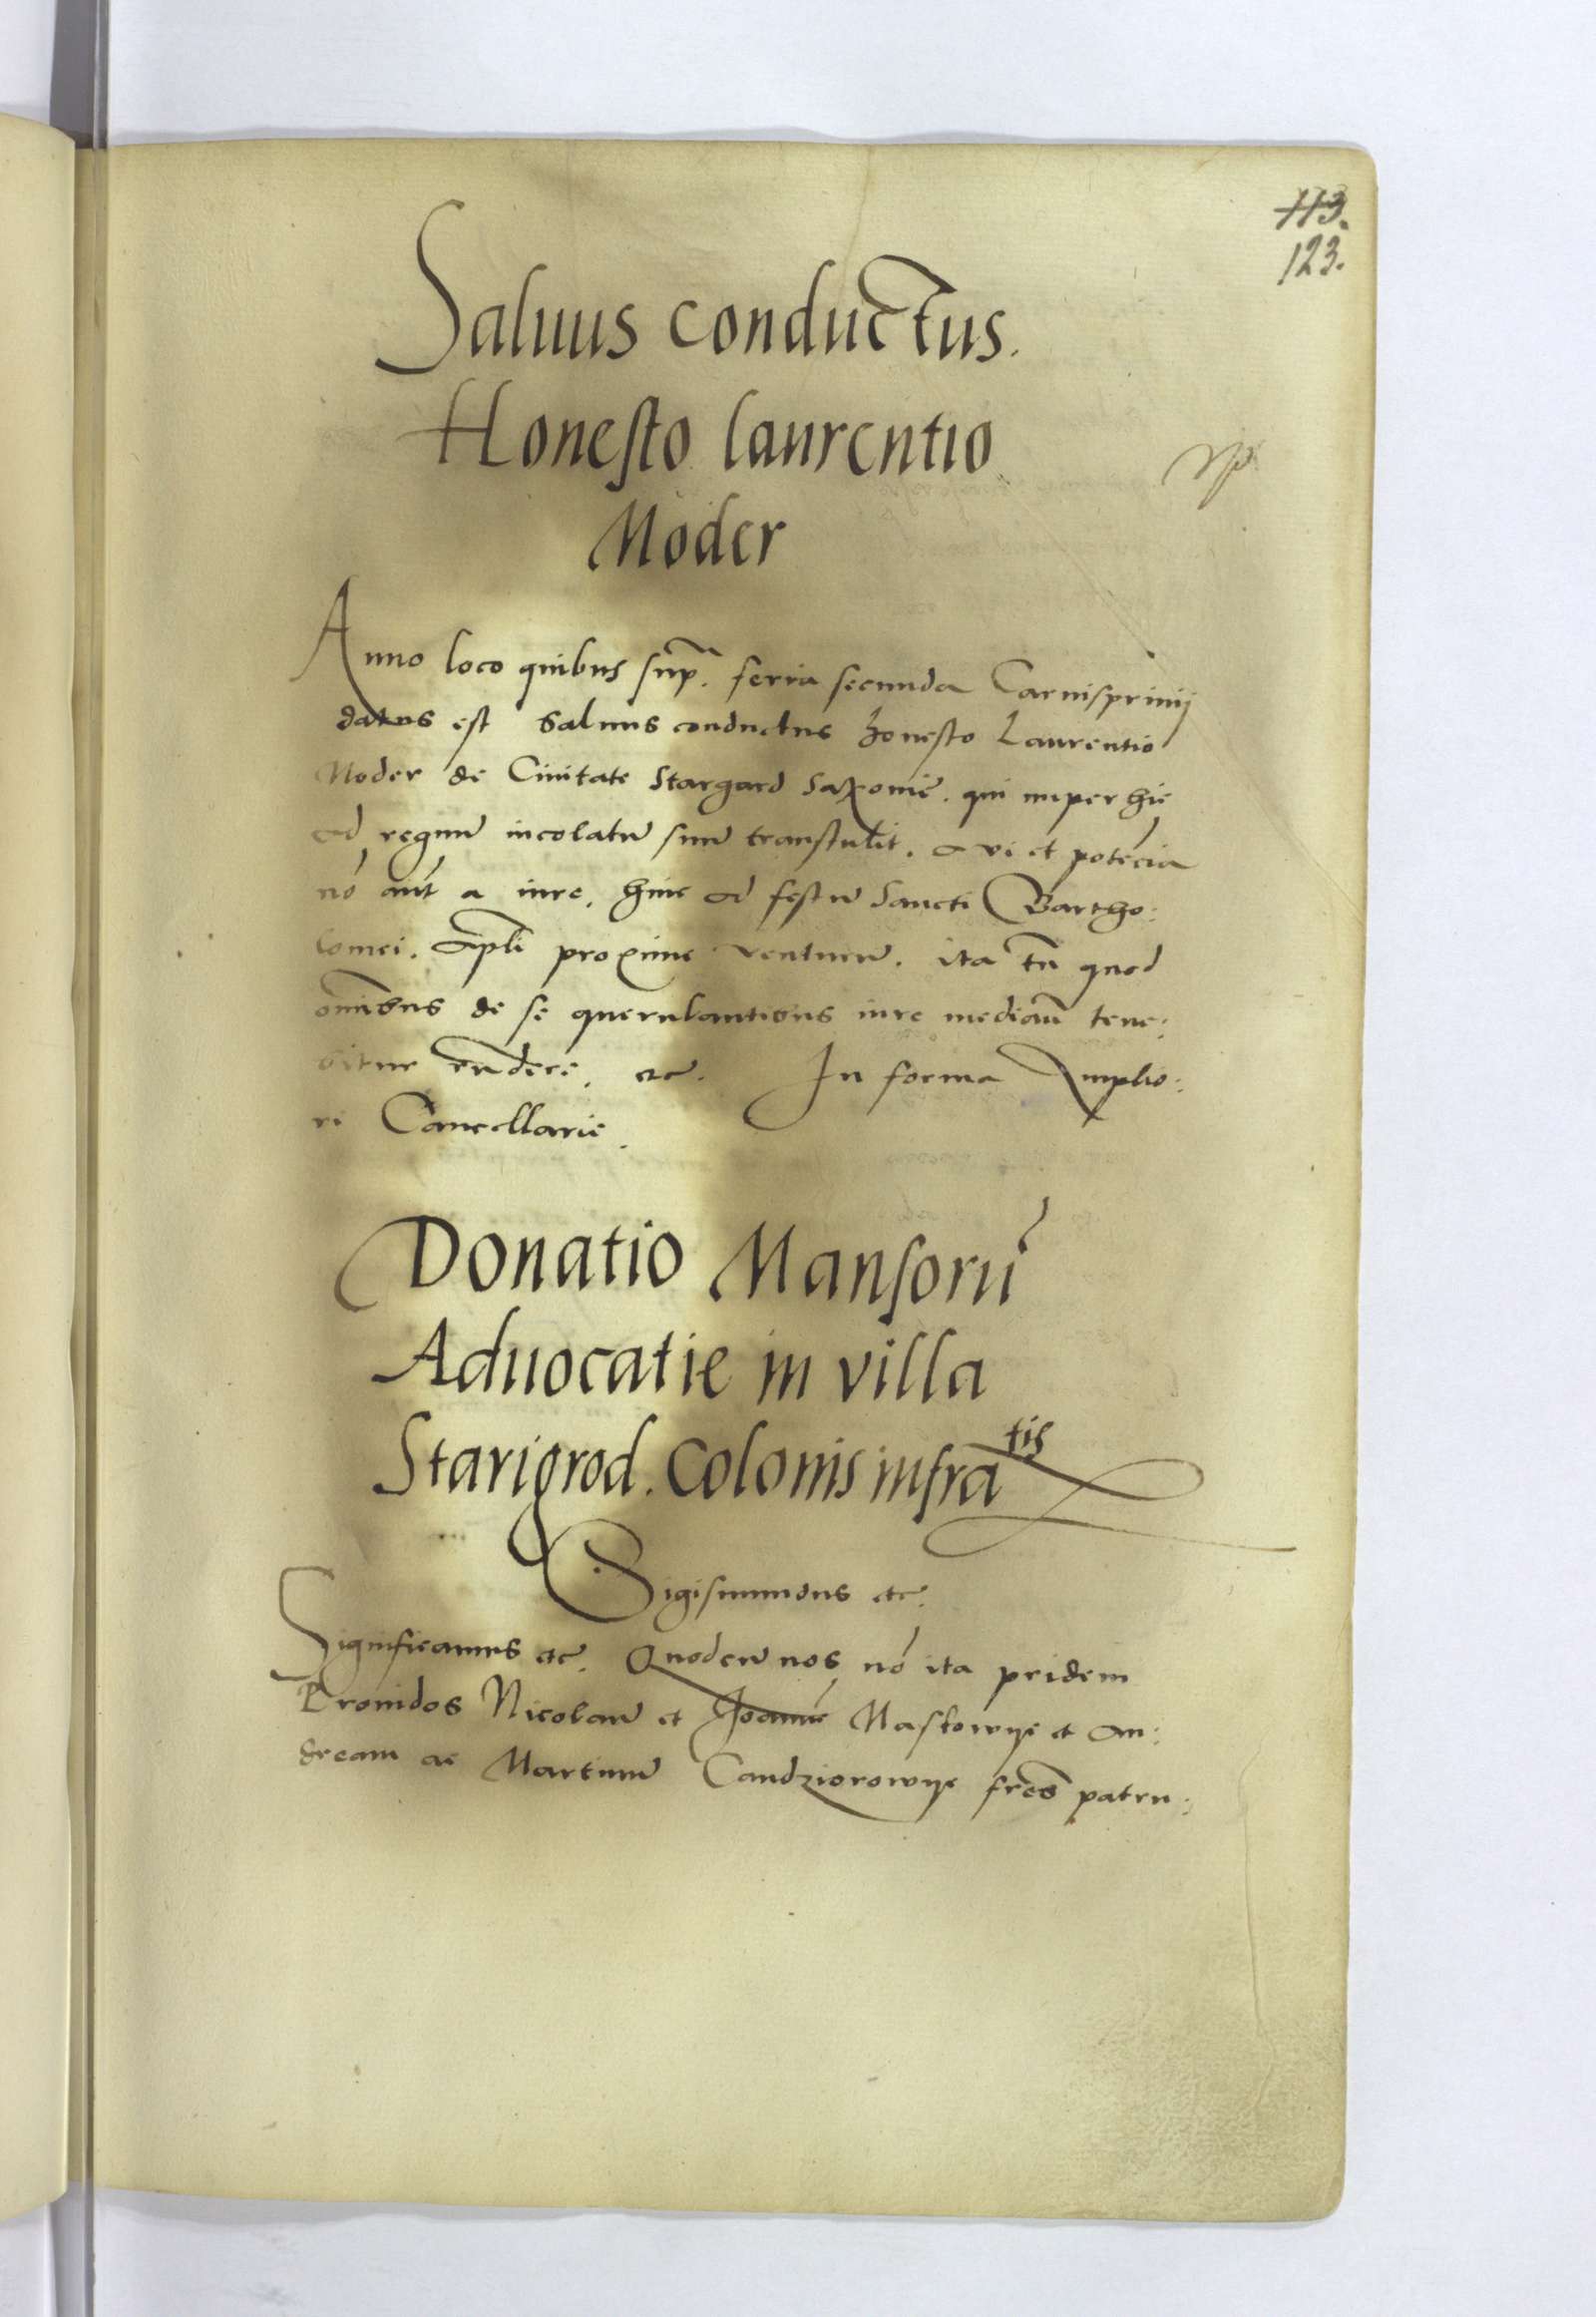 113.
123.
Saluus conductus.
Honesto laurentio
Moder
Anno loco quibus sup̃. feria secunda Carnispriuij
datus est Saluus conductus honesto Laurentio
Moder de Ciuitate Stargard Saxonie. qui nuper huc
ad regnũ incolatũ suũ transtulit. a vi et potẽcia
nõ aũt a iure, hinc ad festũ Sancti Bartho:
lomei. Apli proxime venturũ. ita tñ quod
omibus de se querulantibus iure mediañ tene:
bitur rñdere. etc. In forma Amplio:
ri Cancellarie.
Donatio Mansorũ
Aduocatie in villa
Starigrod. Colonis infratis
Sigismundus etc.
Significamus etc. Quodcũ nos nõ ita pridem
Prouidos Nicolaũ et Joannẽ Maskowye et An:
dream ac Martinũ Candziorowye fres̃ patru: